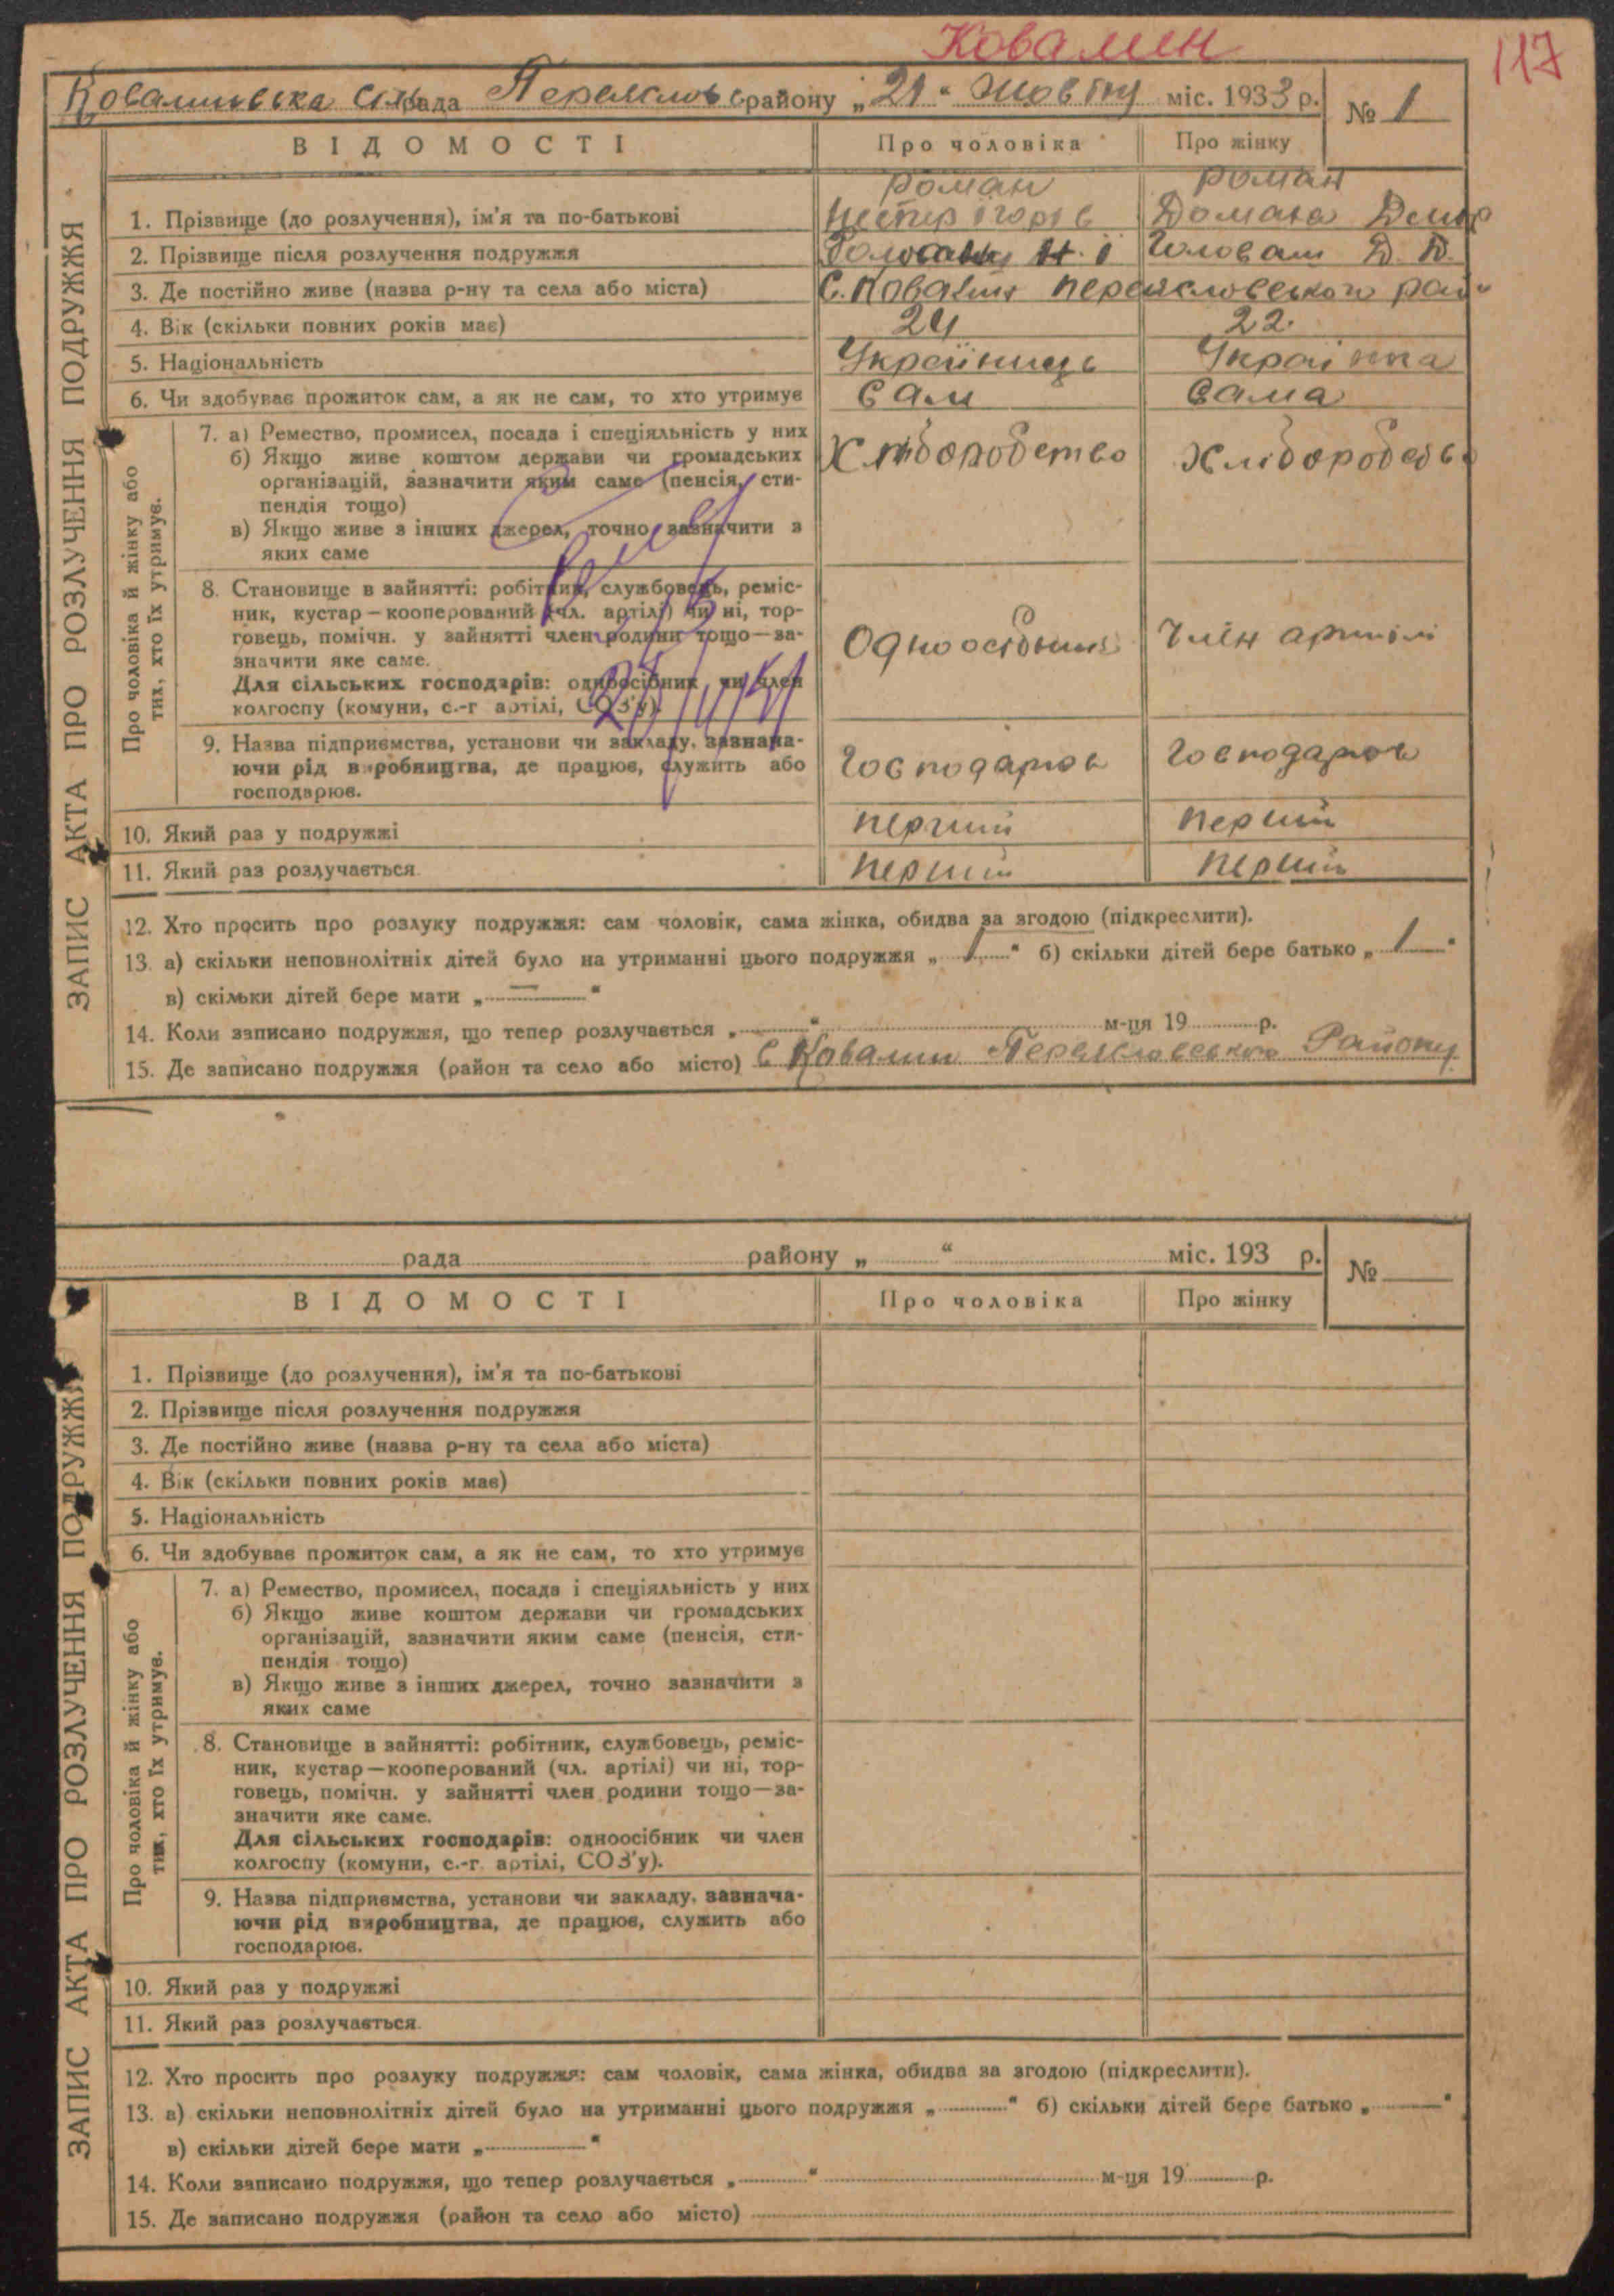 Ковалин
117
Ковалинська сіль рада Переяслов. району „21" жовтня міс. 1933 р. № 1
ВІДОМОСТІ Про чоловіка Про жінку
Роман Роман
1. Прізвище (до розлучення), ім'я та по-батькові Нестер Ігорів Домаха
2. Прізвище після розлучення подружжя Н. І Головаш Д. Д.
3. Де постійно живе (назва р-ну та села або міста) С. Ковалин Переясловського рай
4. Вік (скільки повних років має) 24 22.
5. Національність Українець Українка
6. Чи здобуває прожиток сам, а як не сам, то хто утримує Сам Сама
7. а) Ремество, промисел, посада і спеціяльність у них Хліборобство Хлібороб
б) Якщо живе коштом держави чи громадських
організацій, зазначити яким саме (пенсія, сти-
пендія тощо)
в) Якщо живе з інших джерел, точно зазначити з
яких саме
8. Становище в зайнятті: робітник, службовець, реміс-
ник, кустар—кооперований (чл. артілі) чи ні, тор-
говець, помічн. у зайнятті член родини тощо—за- Одноосібник Член артілі
значити яке саме.
Для сільських господарів: одноосібник чи член
колгоспу (комуни, с.-г артілі, СОЗ'у).
9. Назва підприємства, установи чи закладу, зазнача-
ючи рід виробництва, де працює, служить або Господарює Господарює
господарює.
10. Який раз у подружжі перший перший
11. Який раз розлучається. перший перший
12. Хто просить про розлуку подружжя: сам чоловік, сама жінка, обидва за згодою (підкреслити).
13. а) скільки неповнолітніх дітей було на утриманні цього подружжя „ 1 " б) скільки дітей бере батько „ 1 "
в) скільки дітей бере мати „ — "
14. Коли записано подружжя, що тепер розлучається „ " м-ця 19 р.
15. Де записано подружжя (район та село або місто) С Ковалин Переясловського Району
ЗАПИС АКТА ПРО РОЗЛУЧЕННЯ ПОДРУЖЖЯ
Про чоловіка й жінку або
тих, хто їх утримує.
рада району „ " міс. 193 р. №
ВІДОМОСТІ Про чоловіка Про жінку
1. Прізвище (до розлучення), ім'я та по-батькові
2. Прізвище після розлучення подружжя
3. Де постійно живе (назва р-ну та села або міста)
4. Вік (скільки повних років має)
5. Національність
6. Чи здобуває прожиток сам, а як не сам, то хто утримує
7. а) Ремество, промисел, посада і спеціяльність у них
б) Якщо живе коштом держави чи громадських
організацій, зазначити яким саме (пенсія, сти-
пендія тощо)
в) Якщо живе з інших джерел, точно зазначити з
яких саме
8. Становище в зайнятті: робітник, службовець, реміс-
ник, кустар—кооперований (чл. артілі) чи ні, тор-
говець, помічн. у зайнятті член родини тощо—за-
значити яке саме.
Для сільських господарів: одноосібник чи член
колгоспу (комуни, с.-г. артілі, СОЗ'у).
9. Назва підприємства, установи чи закладу, зазнача-
ючи рід виробництва, де працює, служить або
господарює.
10. Який раз у подружжі
11. Який раз розлучається.
12. Хто просить про розлуку подружжя: сам чоловік, сама жінка, обидва за згодою (підкреслити).
13. а) скільки неповнолітніх дітей було на утриманні цього подружжя „ " б) скільки дітей бере батько „ "
в) скільки дітей бере мати „ "
14. Коли записано подружжя, що тепер розлучається „ " м-ця 19 р.
15. Де записано подружжя (район та село або місто)
ЗАПИС АКТА ПРО РОЗЛУЧЕННЯ ПОДРУЖЖЯ
Про чоловіка й жінку або
тих, хто їх утримує.